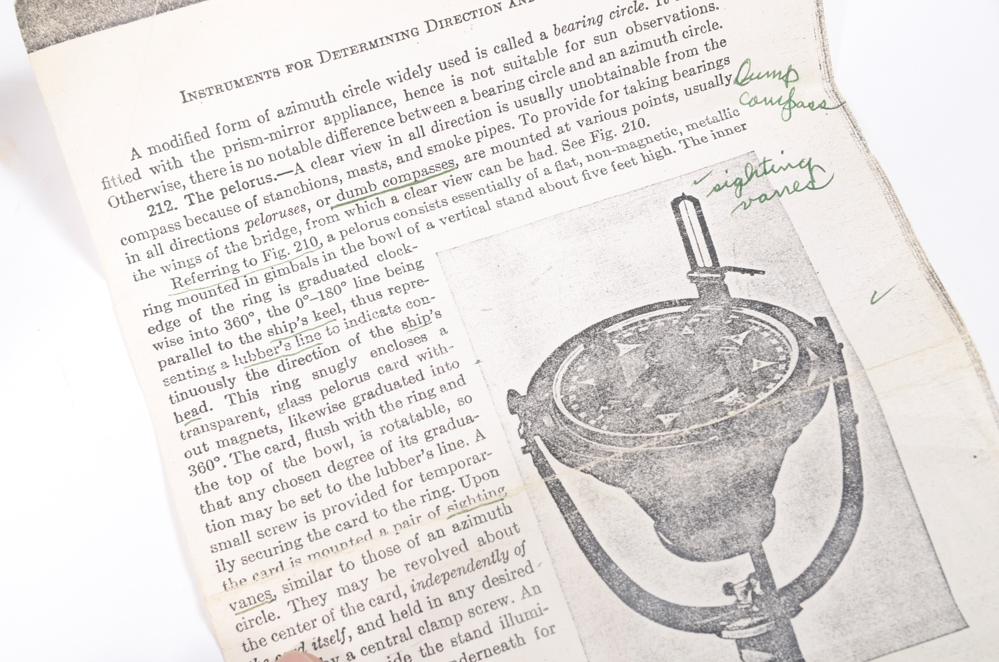 INSTRUMENTS FOR DETERMINING DIRECTION AND
A modified form of azimuth circle widely used is called a bearing circle. It
fitted with the prism-mirror appliance, hence is not suitable for sun observations.
Otherwise, there is no notable difference between a bearing circle and an azimuth circle.
212. The pelorus.—A clear view in all direction is usually unobtainable from the
compass because of stanchions, masts, and smoke pipes. To provide for taking bearings
in all directions peloruses, or dumb compasses, are mounted at various points, usually
the wings of the bridge, from which a clear view can be had. See Fig. 210.
Referring to Fig. 210, a pelorus consists essentially of a flat, non-magnetic, metallic
ring mounted in gimbals in the bowl of a vertical stand about five feet high. The inner
edge of the ring is graduated clock-
wise into 360°, the 0°–180° line being
parallel to the ship's keel, thus repre-
senting a lubber's line to indicate con-
tinuously the direction of the ship's
head. This ring snugly encloses a
transparent, glass pelorus card with-
out magnets, likewise graduated into
360°. The card, flush with the ring and
the top of the bowl, is rotatable, so
that any chosen degree of its gradua-
tion may be set to the lubber's line. A
small screw is provided for temporar-
ily securing the card to the ring. Upon
the card is mounted a pair of sighting
vanes, similar to those of an azimuth
circle. They may be revolved about
the center of the card, independently of
the card itself, and held in any desired
by a central clamp screw. An
the stand illumi-
underneath for
Dump
compass
sighting
vanes